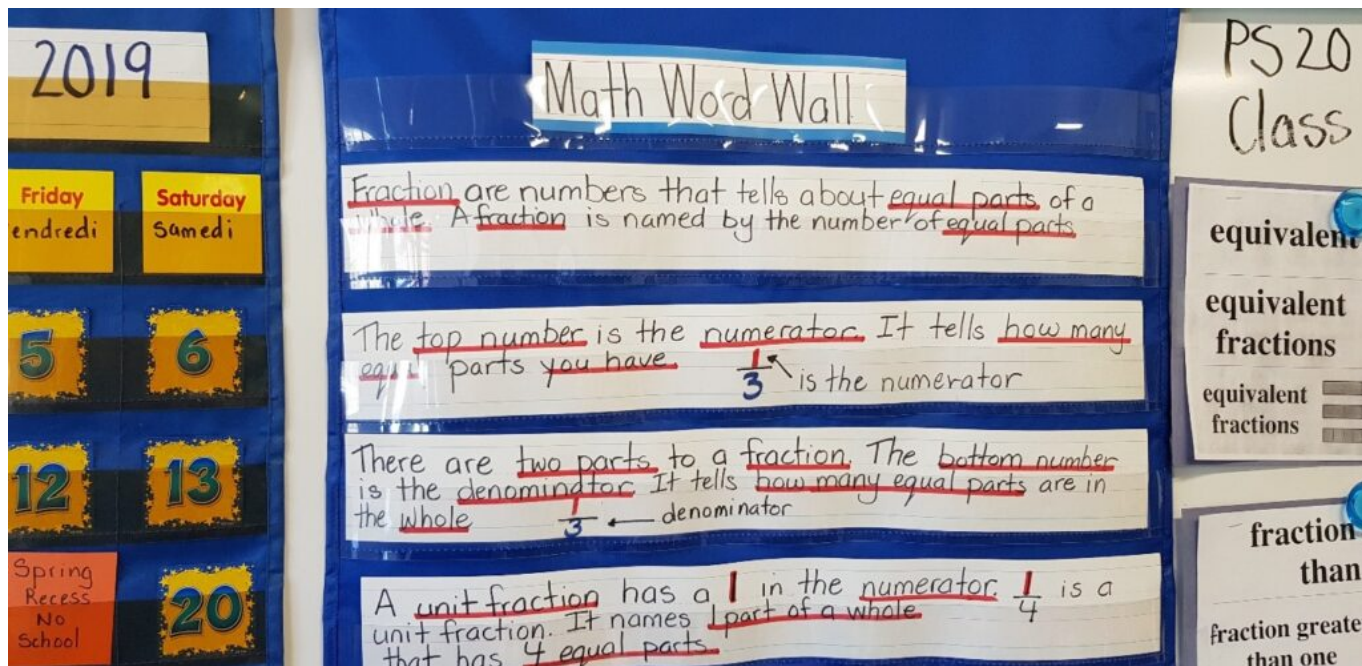 2019
Friday
endredi
Saturday
Samedi
5
6
12
13
Spring
Recess
No
School
20
Math Word Wall
Fraction are numbers that tells about equal parts of a
whole. A fraction is named by the number of equal parts
The top number is the numerator. It tells how many
equal parts you have.
1
3
is the numerator
There are two parts to a fraction. The bottom number
is the denomindtor. It tells how many equal parts are in
the whole
1
3
denominator
A unit fraction has a 1 in the numerator. 1/4 is a
unit fraction. It names 1 part of a whole
that has 4 equal parts.
PS 20
Class
equivalent
equivalent
fractions
equivalent
fractions
fraction
than
fraction greate
than one